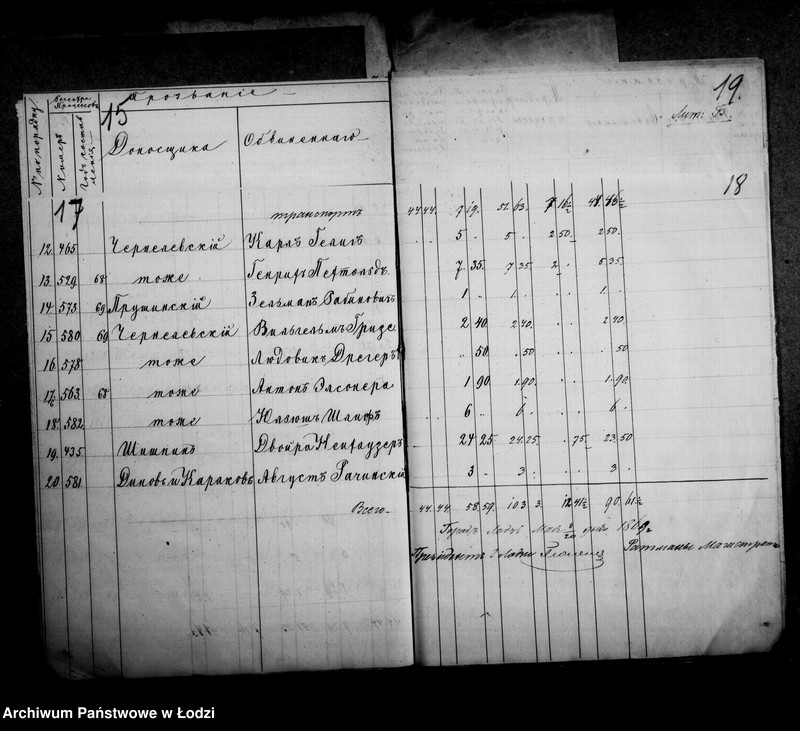 19.
Лит: Б.
18
№ по порядку
Номеръ
Прозваніе
15
Доносщика
Обвиненнаго
17
транспортъ 44. 44. 7 19. 51 63.
12. 465 Чернелевскій Карлъ Гелигъ 5 . 5 . 2 50 2 50.
13. 529 68 тоже Генрихъ 7. 35. 7 35 2 5 35
14. 573 69 Прушинскій Зельманъ Рабиновичъ 1 . 1 . 1 .
15 580 69 Чернелевскій Вильгельмъ Гризе 2 40. 2 40. 2 40
16. 578 тоже Людовикъ Дрегеръ 50 . 50 50
17. 563 68 тоже Антонъ Элснера 1 90 1. 90 1. 90
18. 582 тоже Юліюшъ 6 . 6 . 6 .
19. 435 Шишкинъ Двойра Ненгаузеръ 24 25 24. 25 75 23. 50
20. 581 Диновъ и Караковъ Августъ Рачинскій 3 . 3 . 3 .
Всего 44. 44. 58. 59. 103 3. 12 41½ 90. 61½
Городъ Лодзь Мая 8/20 дня 1869
Президентъ г. Лодзи Ратманы Магистрата
Archiwum Państwowe w Łodzi